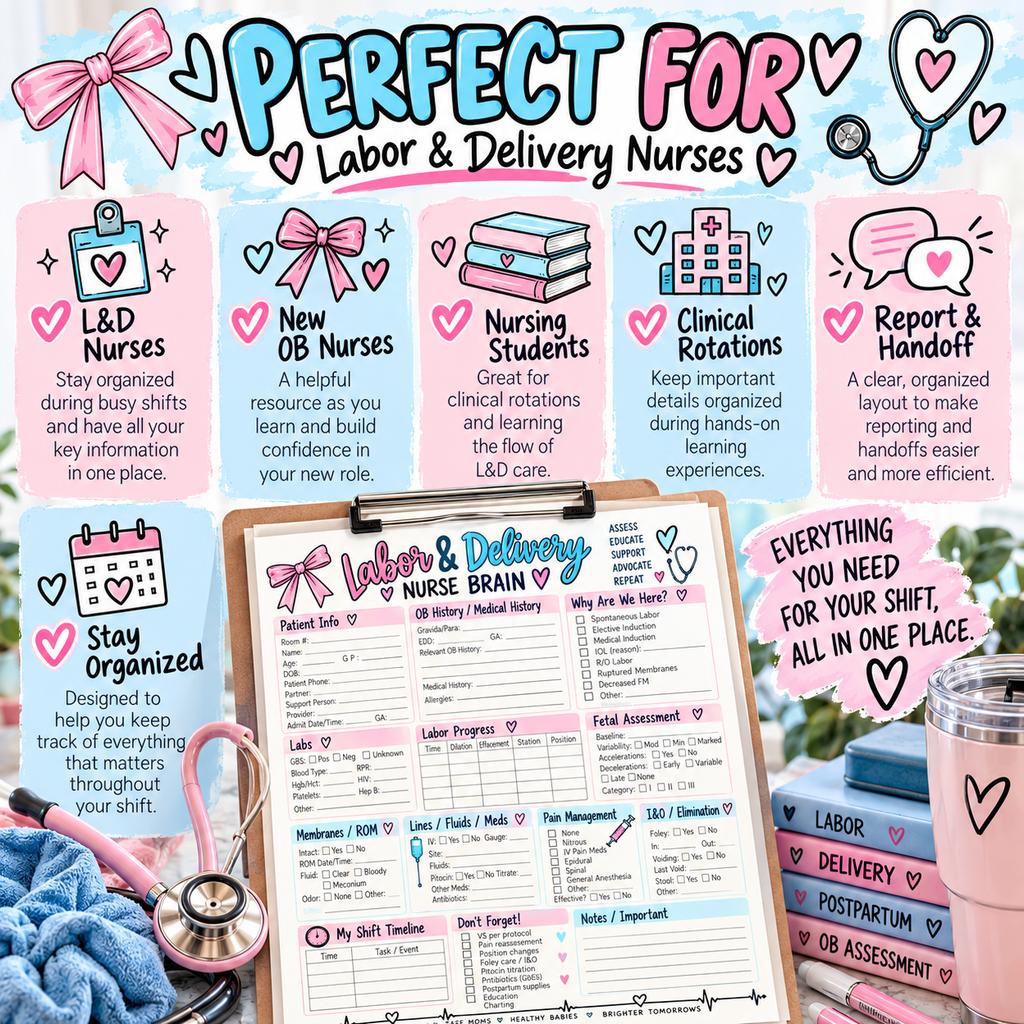 PERFECT FOR
Labor & Delivery Nurses
L&D
Nurses
Stay organized
during busy shifts
and have all your
key information
in one place.
New
OB Nurses
A helpful
resource as you
learn and build
confidence in
your new role.
Nursing
Students
Great for
clinical rotations
and learning
the flow of
L&D care.
Clinical
Rotations
Keep important
details organized
during hands-on
learning
experiences.
Report &
Handoff
A clear, organized
layout to make
reporting and
handoffs easier
and more efficient.
Stay
Organized
Designed to
help you keep
track of everything
that matters
throughout
your shift.
EVERYTHING
YOU NEED
FOR YOUR SHIFT,
ALL IN ONE PLACE.
Labor & Delivery
NURSE BRAIN
ASSESS
EDUCATE
SUPPORT
ADVOCATE
REPEAT
Patient Info
Room #:
Name:
Age: G P :
DOB:
Patient Phone:
Partner:
Support Person:
Provider:
Admit Date/Time: GA:
OB History / Medical History
Gravida/Para:
EDD: GA:
Relevant OB History:
Medical History:
Allergies:
Why Are We Here?
Spontaneous Labor
Elective Induction
Medical Induction
IOL (reason):
R/O Labor
Ruptured Membranes
Decreased FM
Other:
Labs
GBS: Pos Neg Unknown
Blood Type: RPR:
Hgb/Hct: HIV:
Platelets: Hep B:
Other:
Labor Progress
Time Dilation Effacement Station Position
Fetal Assessment
Baseline:
Variability: Mod Min Marked
Accelerations: Yes No
Decelerations: Early Variable
Late None
Category: I II III
Membranes / ROM
Intact: Yes No
ROM Date/Time:
Fluid: Clear Bloody
Meconium
Odor: None Other:
Lines / Fluids / Meds
IV: Yes No Gauge:
Site:
Fluids:
Pitocin: Yes No Titrate:
Other Meds:
Antibiotics:
Pain Management
None
Nitrous
IV Pain Meds
Epidural
Spinal
General Anesthesia
Other:
Effective? Yes No
I&O / Elimination
Foley: Yes No
In: Out:
Voiding: Yes No
Last Void:
Stool: Yes No
Other:
My Shift Timeline
Time Task / Event
Don't Forget!
VS per protocol
Pain reassesement
Position changes
Foley care / I&O
Pitocin titration
Postpartum supplies
Education
Charting
Notes / Important
MOMS HEALTHY BABIES BRIGHTER TOMORROWS
LABOR
DELIVERY
POSTPARTUM
OB ASSESSMENT